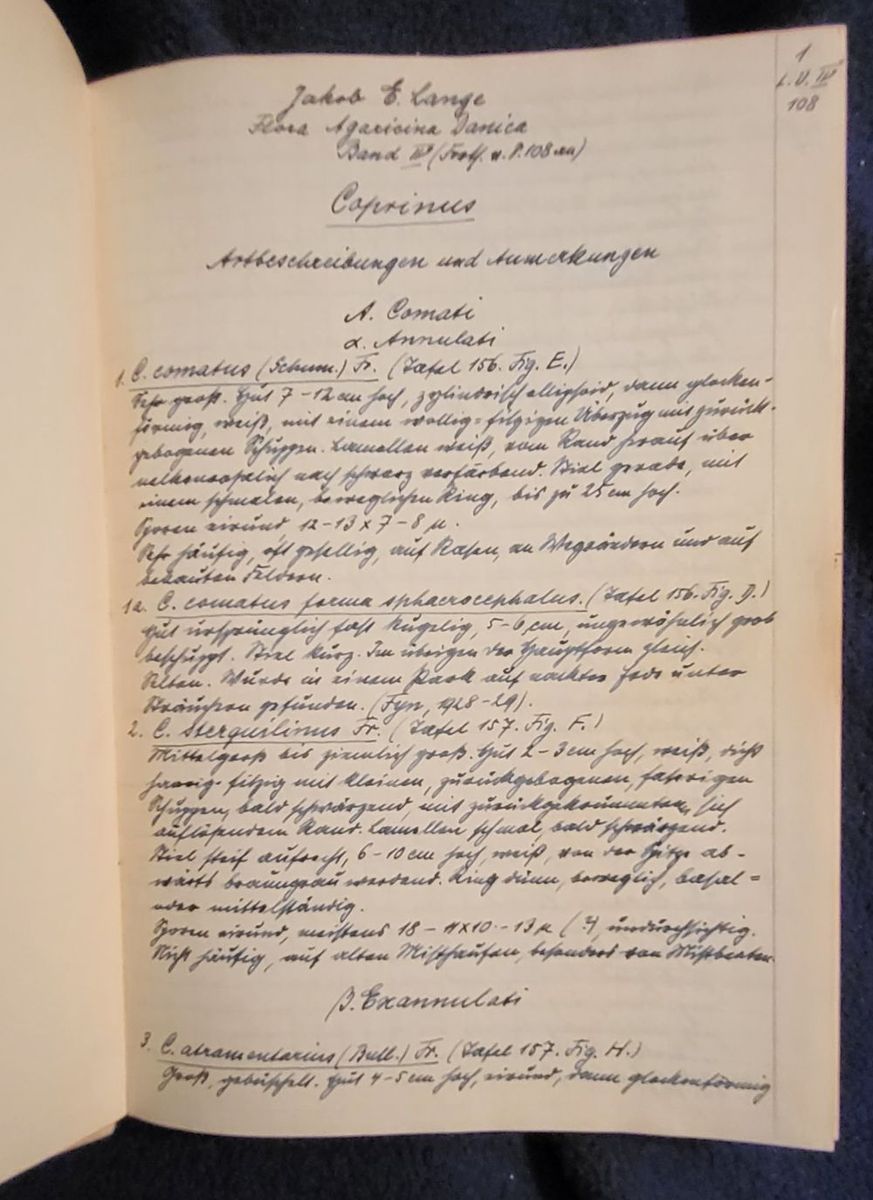 1
L. V. IV
108
Jakob E. Lange
Flora Agaricina Danica
Band IV (Forts. v. P. 108 an)
Coprinus
Artbeschreibungen und Anmerkungen
A. Comati
α. Annulati
1. C. comatus (Schum.) Fr. (Tafel 156. Fig. E.)
Sehr groß. Hut 7-12 cm hoch, zylindrisch ellipsoid, dann glocken-
förmig, weiß, mit einem wollig-filzigen Überzug mit zurück-
gebogenen Schuppen. Lamellen weiß, vom Rand herauf über
nach schwarz verfärbend. Stiel gerade, mit
einem schmalen, beweglichen Ring, bis zu 25 cm hoch.
Sporen eirund, 12-13 x 7-8 µ.
Sehr häufig, oft gesellig, auf Rasen, an Wegrändern und auf
bebauten Feldern.
1a. C. comatus forma sphaerocephalus. (Tafel 156. Fig. D.)
Hut ursprünglich fast kugelig, 5-6 cm, ungewöhnlich grob
beschuppt. Stiel kurz. Im übrigen der Hauptform gleich.
Selten. Wurde in einem Park auf nackter Erde unter
Sträuchern gefunden. (Fyn, 1928-29).
2. C. sterquilinus Fr. (Tafel 157. Fig. F.)
Mittelgroß bis ziemlich groß. Hut 2-3 cm hoch, weiß, dicht
haarig-filzig mit kleinen, zurückgebogenen, faserigen
Schuppen, bald schwärzend, mit zurückgekrümmten, sich
auflösendem Rand. Lamellen schmal, bald schwärzend.
Stiel steif aufrecht, 6-10 cm hoch, weiß, von der Spitze ab-
wärts braungrau werdend. Ring dünn, beweglich, basal=
oder mittelständig.
Sporen eirund, meistens 18 - x 10 - 13 µ (?), undurchsichtig.
Nicht häufig, auf alten Misthaufen, besonders von Mistbeeten.
β. Exannulati
3. C. atramentarius (Bull.) Fr. (Tafel 157. Fig. H.)
Groß, gebüschelt. Hut 4-5 cm hoch, eirund, dann glockenförmig